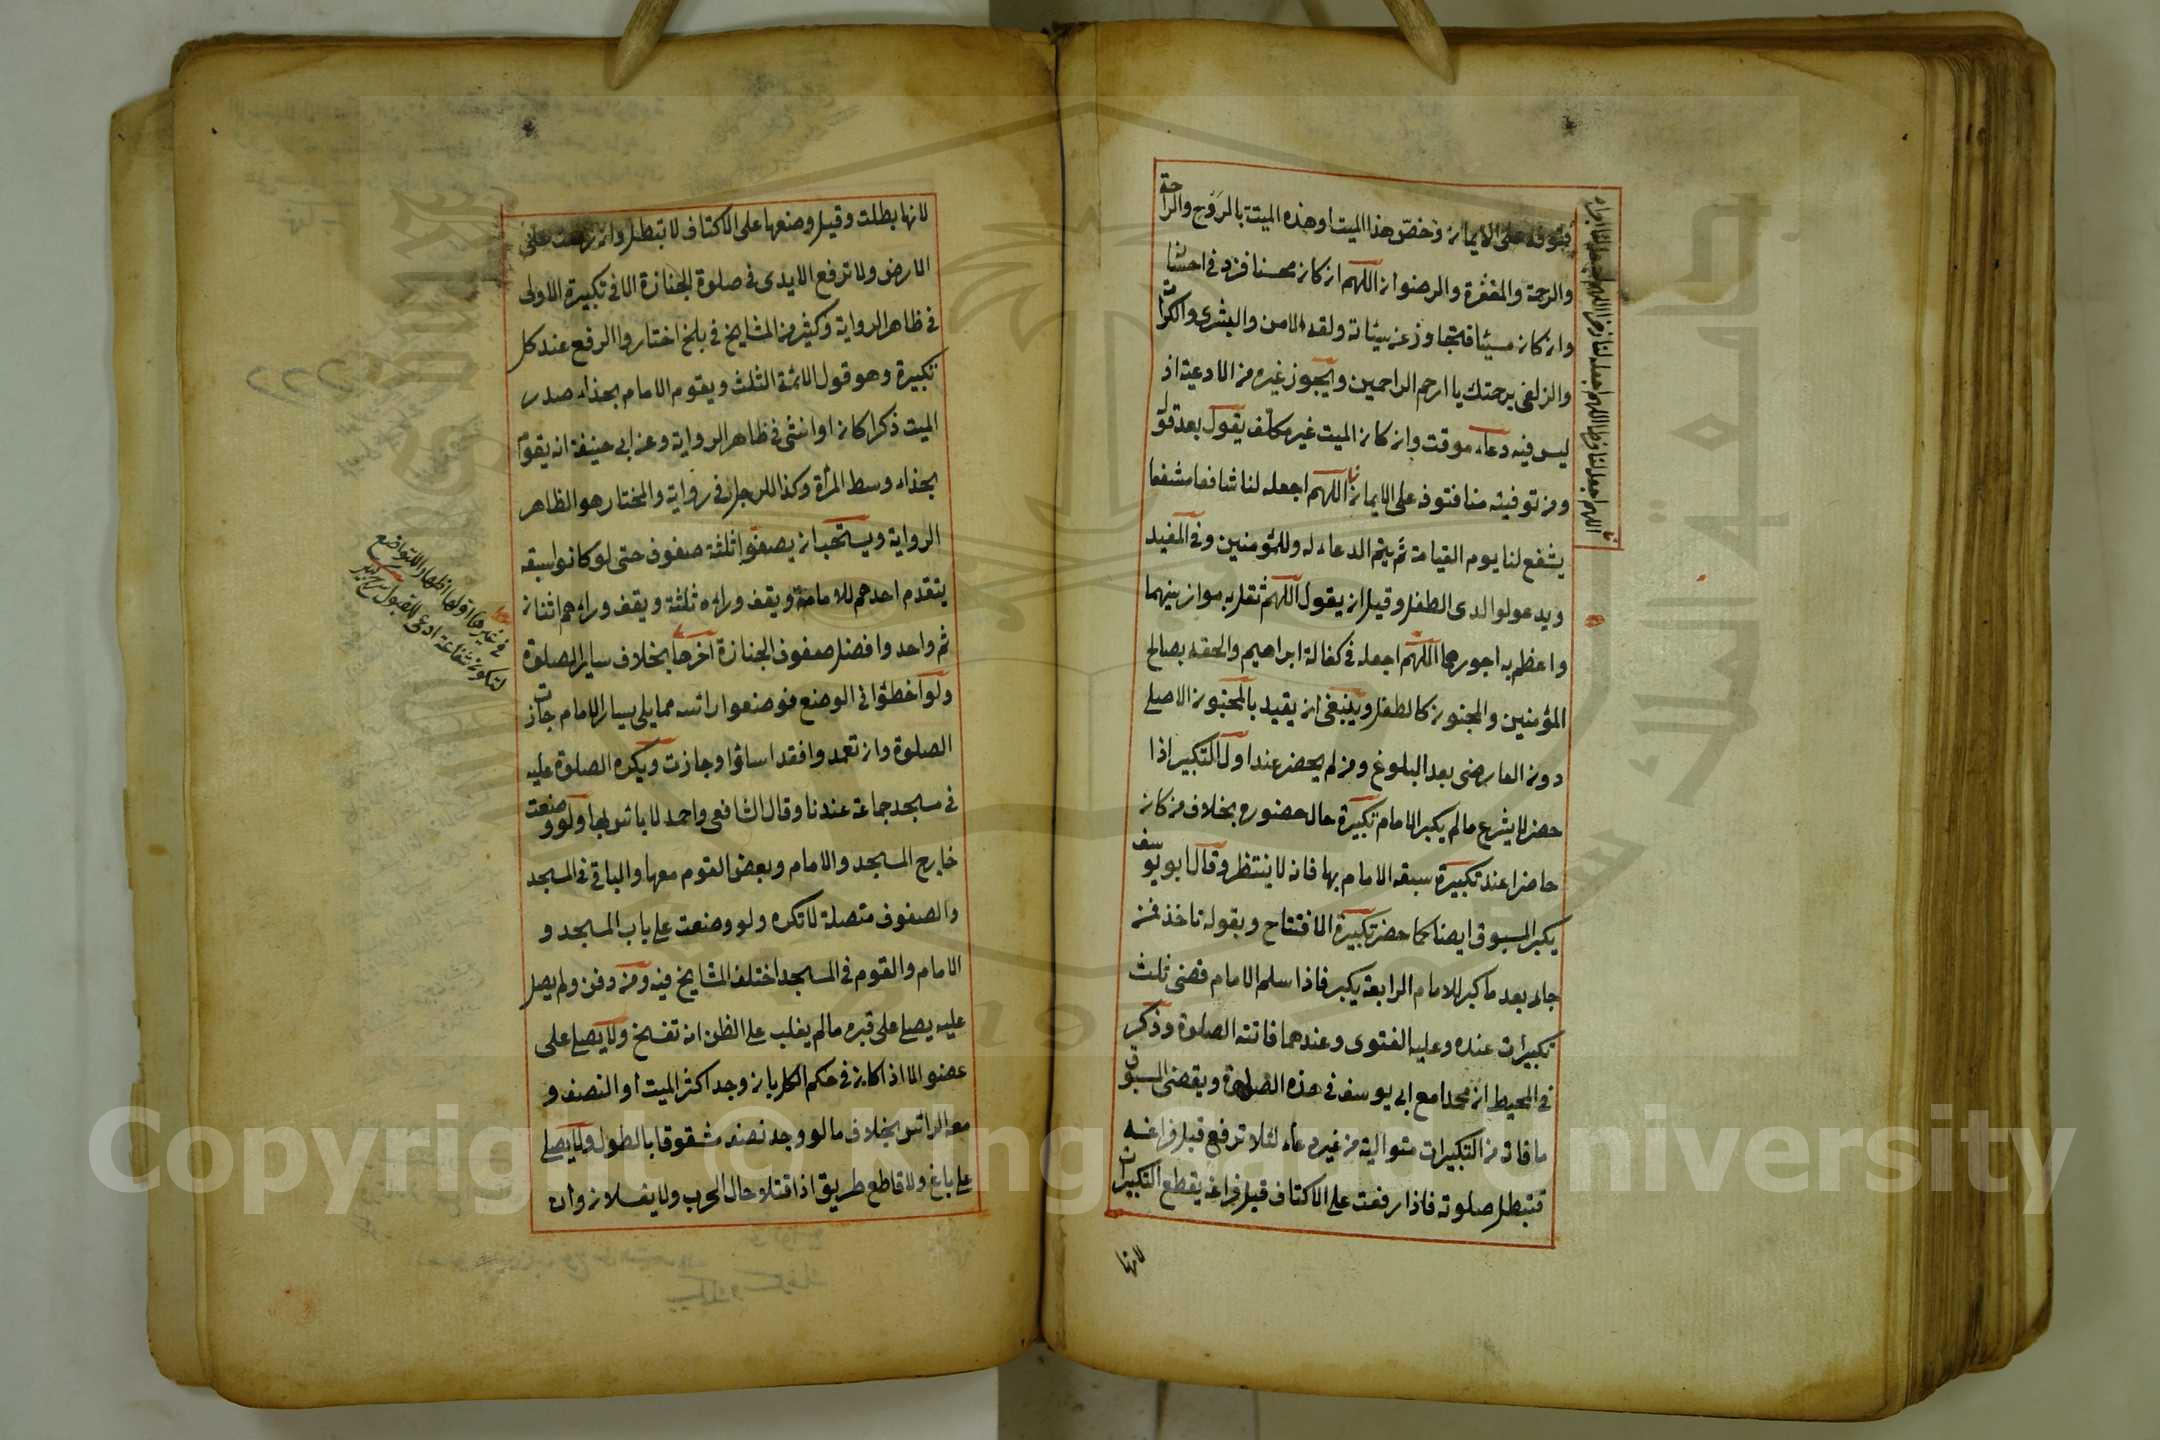 فتوفه على الايمان وخصّ هذا الميت او هذه الميتة بالرَّوح والراحة
والرحمة والمغفرة والرضوان اللهم ان كان محسنا فزد في احسانه
وان كان مسيئا فتجاوز عن سيئاته ولقه الامن والبشرى والكرامة
والزلفى برحمتك يا ارحم الراحمين ويجوز غيره من الادعية اذ
ليس فيه دعاء موقت وان كان الميت غير مكلف يقول بعد قوله
ومن توفيته منا فتوفه على الايمان اللهم اجعله لنا شافعا مشفعا
يشفع لنا يوم القيامة ثم يتم الدعاء له وللمؤمنين وفي المفيد
ويدعو لوالدى الطفل وقيل ان يقول اللهم ثقل به موازينهما
واعظم به اجورهما اللهم اجعله في كفالة ابراهيم والحقه بصالح
المؤمنين والمجنون كالطفل وينبغى ان يقيد بالمجنون الاصلى
دون العارضى بعد البلوغ ومن لم يحضر عند اول التكبير اذا
حضر لا يشرع مالم يكبر الامام تكبيرة حال حضوره بخلاف من كان
حاضرا عند تكبيرة سبقه الامام بها فانه لا ينتظر وقال ابو يوسف
يكبر المسبوق ايضا كما حضر تكبيرة الافتتاح وبقوله ناخذ فمن
جاء بعد ما كبر الامام الرابعة يكبر فاذا سلم الامام قضى ثلث
تكبيرات عنده وعليه الفتوى وعندهما فاتته الصلوة وذكر
في المحيط ان محمدا مع ابى يوسف في هذه الصلوة ويقضى المسبوق
ما فاته من التكبيرات متوالية من غير دعاء لئلا ترفع قبل فراغه
فتبطل صلوته فاذا رفعت على الاكتاف قبل فراغه يقطع التكبيرات
لانها
اللهم اجعله لنا فرطا اللهم اجعله لنا
لانها بطلت وقيل وضعها على الاكتاف لا تبطل وان رفعت على
الارض ولا ترفع الايدى في صلوة الجنازة الا في تكبيرة الاولى
في ظاهر الرواية وكثير من المشايخ في بلخ اختاروا الرفع عند كل
تكبيرة وهو قول الائمة الثلث ويقوم الامام بحذاء صدر
الميت ذكرا كان او انثى في ظاهر الرواية وعن ابى حنيفة انه يقوم
بحذاء وسط المرأة وكذا للرجل في رواية والمختار هو الظاهر
الرواية ويستحب ان يصفوا ثلثة صفوف حتى لو كانوا سبعة
يتقدم احدهم للامامة ويقف وراءه ثلثة ويقف وراءهم اثنان
ثم واحد وافضل صفوف الجنازة آخرها بخلاف ساير الصلوة
ولو اخطئوا في الوضع فوضعوا راسه مما يلى يسار الامام جازت
الصلوة وان تعمدوا فقد اساؤا وجازت ويكره الصلوة عليه
في مسجد جماعة عندنا وقال الشافعى واحمد لا باس بها ولو وضعت
خارج المسجد والامام وبعض القوم معها والباقى في المسجد
والصفوف متصلة لا تكره ولو وضعت على باب المسجد و
الامام والقوم في المسجد اختلف المشايخ فيه ومن دفن ولم يصل
عليه يصلى على قبره مالم يغلب على الظن انه تفسخ ولا يصلى على
عضو الا اذا كان في حكم الكل بان وجد اكثر الميت او النصف و
معه الراس بخلاف ما لو وجد نصفه مشقوقا بالطول ولا يصلى
على باغ ولا قاطع طريق اذا قتلا حال الحرب ولا يغسلان وان
في غيرها اولها اظهارا للتواضع
لتكون شفاعة ادعى للقبول